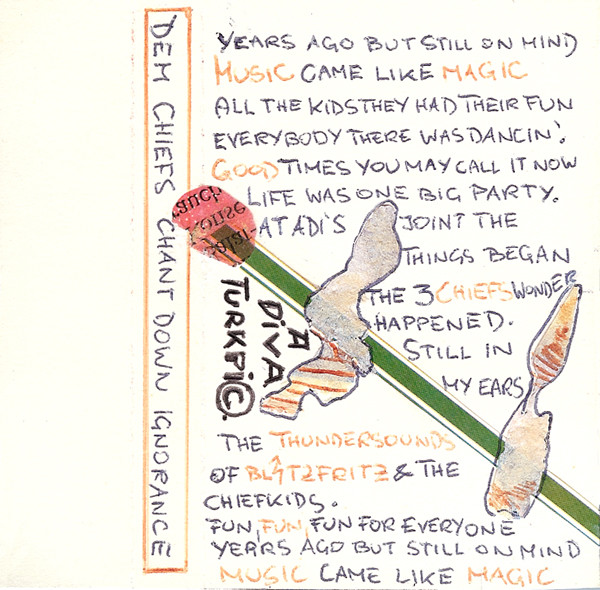 DEM CHIEFS CHANT DOWN IGNORANCE
YEARS AGO BUT STILL ON MIND
MUSIC CAME LIKE MAGIC
ALL THE KIDS THEY HAD THEIR FUN
EVERYBODY THERE WAS DANCIN'.
GOOD TIMES YOU MAY CALL IT NOW
LIFE WAS ONE BIG PARTY.
AT ADI'S JOINT THE
THINGS BEGAN
THE 3 CHIEFS WONDER
HAPPENED.
STILL IN
MY EARS
A DIVA
TURKPIC©.
THE THUNDERSOUNDS
OF BLITZFRITZ & THE
CHIEFKIDS.
FUN, FUN, FUN FOR EVERYONE
YEARS AGO BUT STILL ON MIND
MUSIC CAME LIKE MAGIC